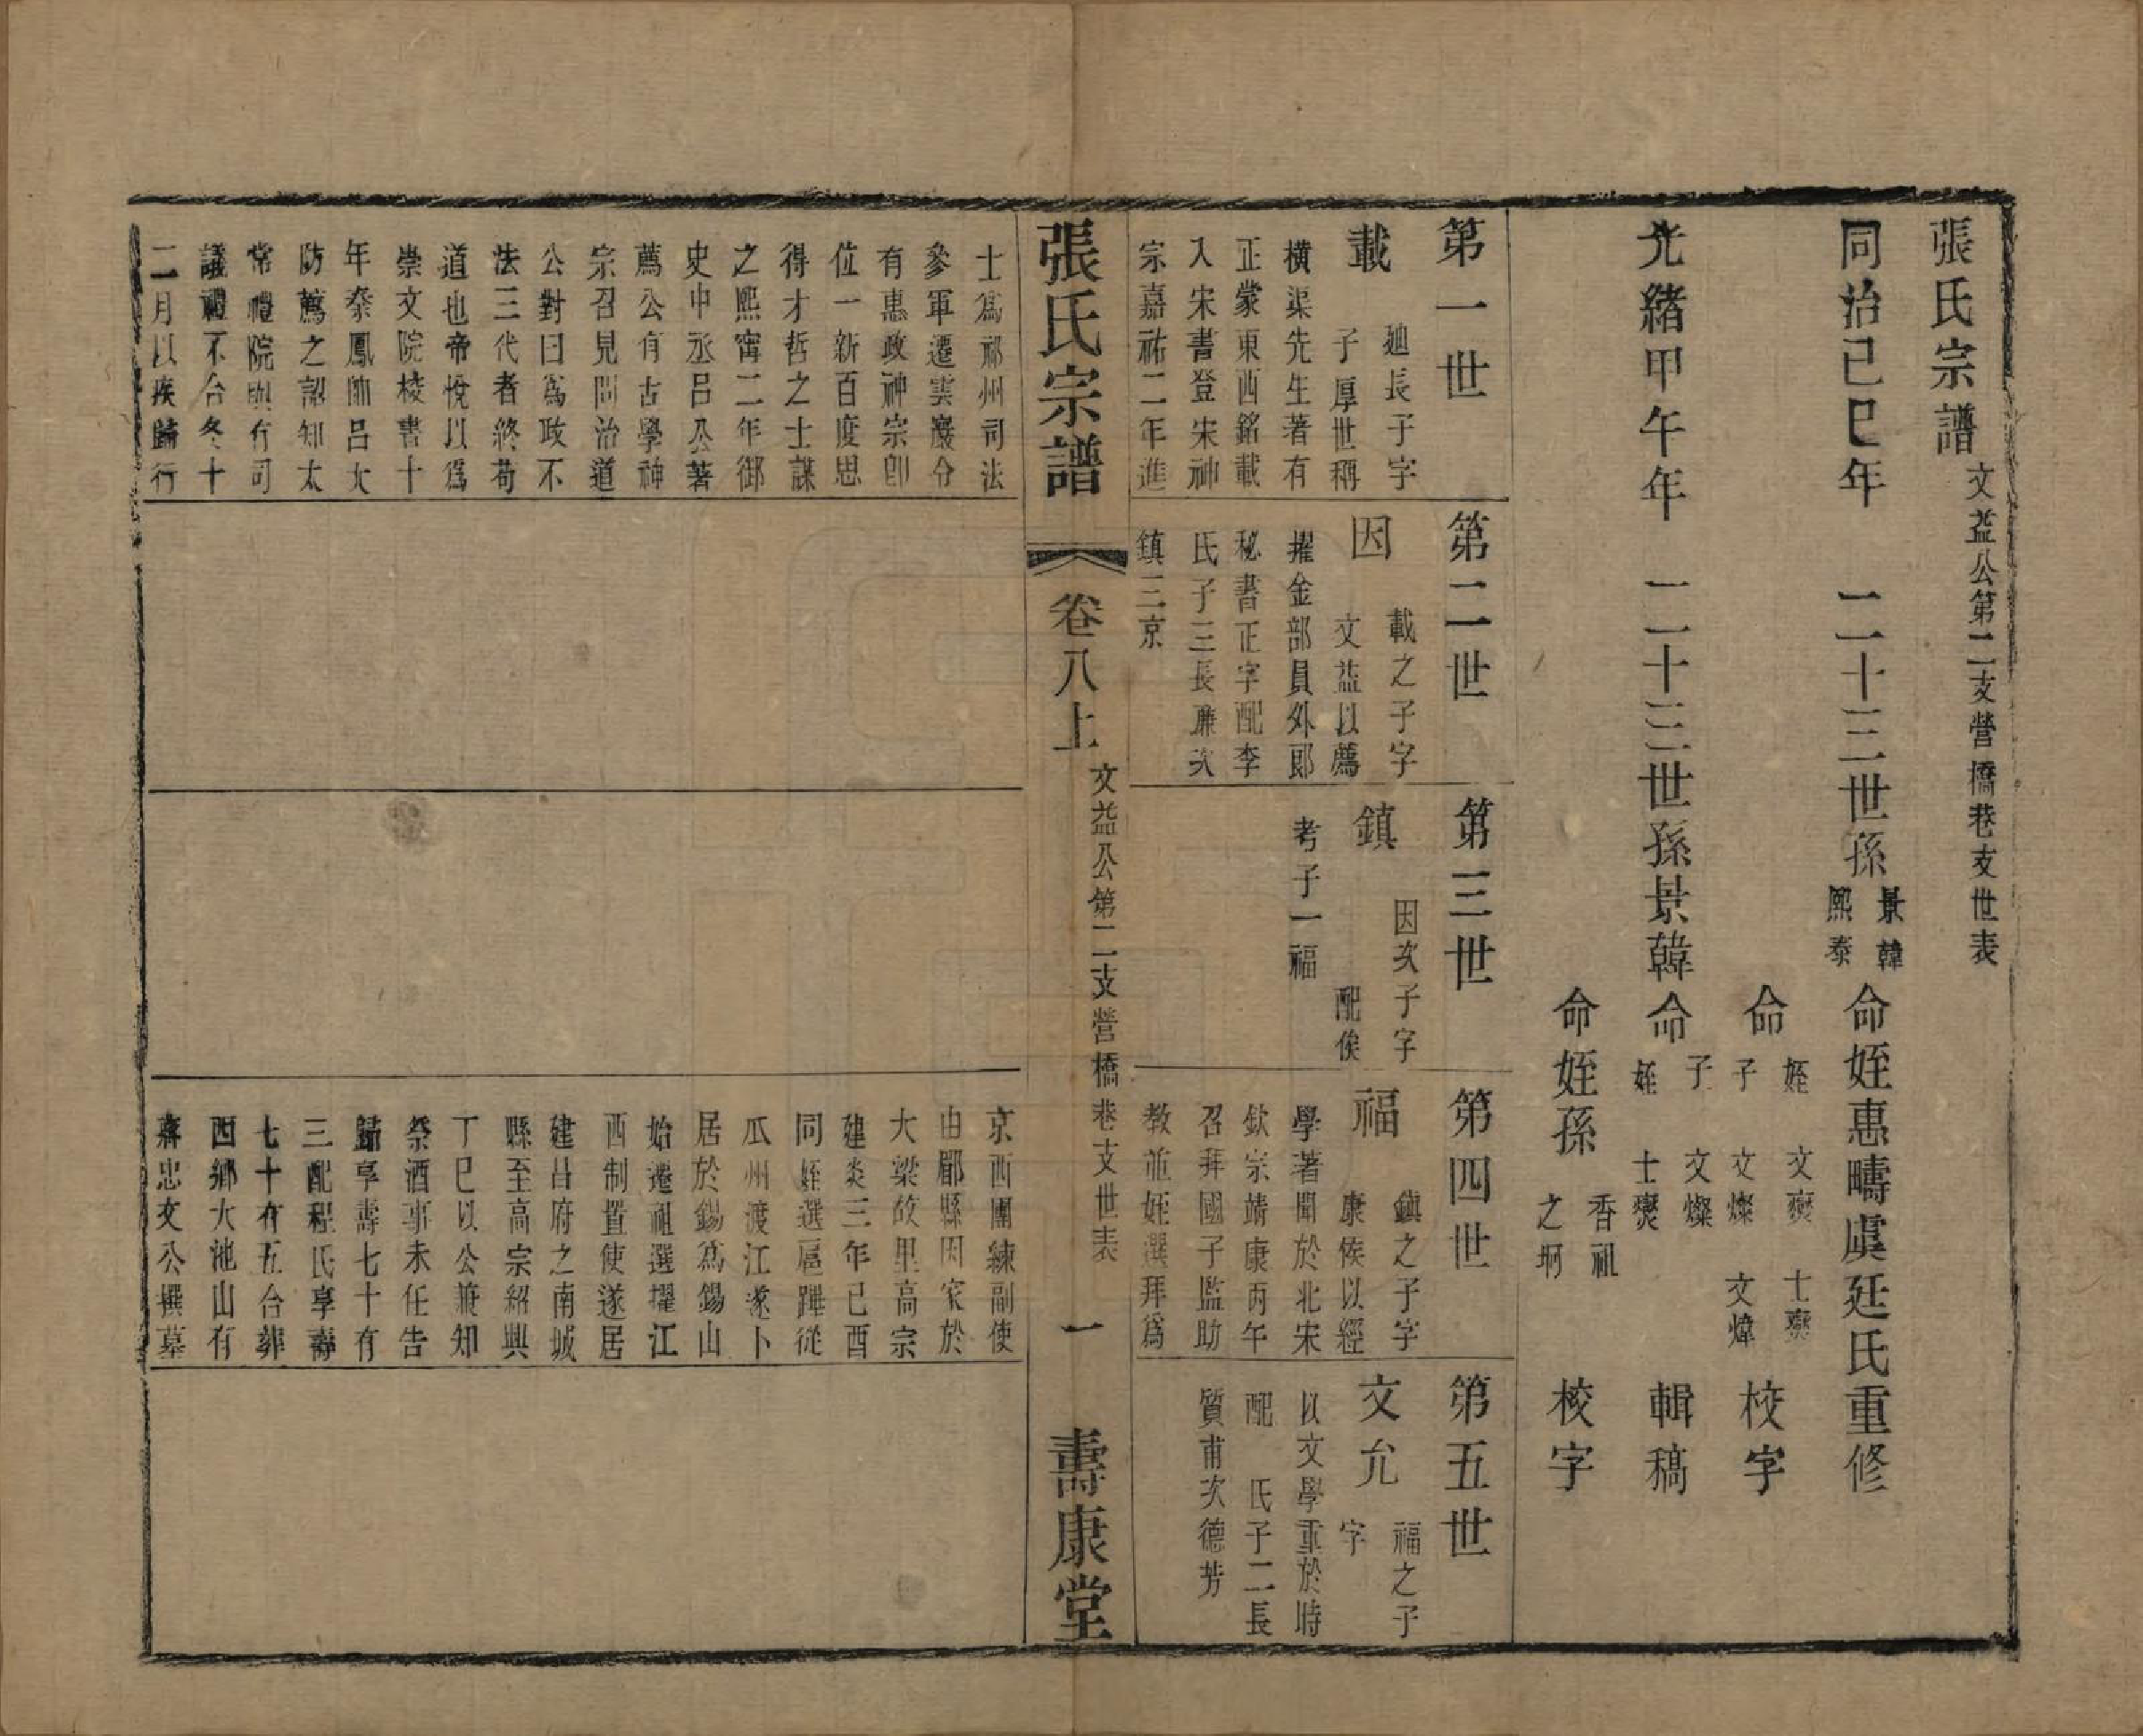 張氏宗譜
文益公第二支營橋巷支世表
同治己巳年　二十三世孫
景韓
熙泰
命姪惠疇虞廷氏重修
命
姪　文爕　士爕
子　文燦　文煒
校字
光緒甲午年　二十三世孫景韓
命
子　文燦
姪　士爕
輯稿
命姪孫
香祖
之坰
校字
第一世
載
廸長子字
子厚世稱
橫渠先生著有
正蒙東西銘載
入宋書登宋神
宗嘉祐二年進
第二世
因
載之子字
文益以薦
擢金部員外郎
秘書正字配李
氏子三長廉次
鎮三京
第三世
鎮
因次子字
配俟
考子一福
第四世
福
鎮之子字
康侯以經
學著聞於北宋
欽宗靖康丙午
召拜國子監助
教並姪選拜爲
第五世
文允
福之子
字
以文學重於時
配　氏子二長
質甫次德芳
張氏宗譜
卷八上
文益公第二支營橋巷支世表
一
壽康堂
士爲祁州司法
參軍遷雲巖分
有惠政神宗卽
位一新百度思
得才哲之士謀
之熙甯二年御
史中丞呂公著
薦公有古學神
宗召見問治道
公對曰爲政不
法三代者終苟
道也帝悅以爲
崇文院校書十
年秦鳳帥呂大
防薦之詔知太
常禮院與有司
議禮不合冬十
二月以疾歸行
京西團練副使
由郿縣因家於
大梁故里高宗
建炎三年己酉
同姪選扈蹕從
瓜州渡江遂卜
居於錫爲錫山
始遷祖選擢江
西制置使遂居
建昌府之南城
縣至高宗紹興
丁巳以公兼知
祭酒事未任告
歸享壽七十有
三配程氏享壽
七十有五合葬
西鄉大池山有
蔣忠文公撰墓